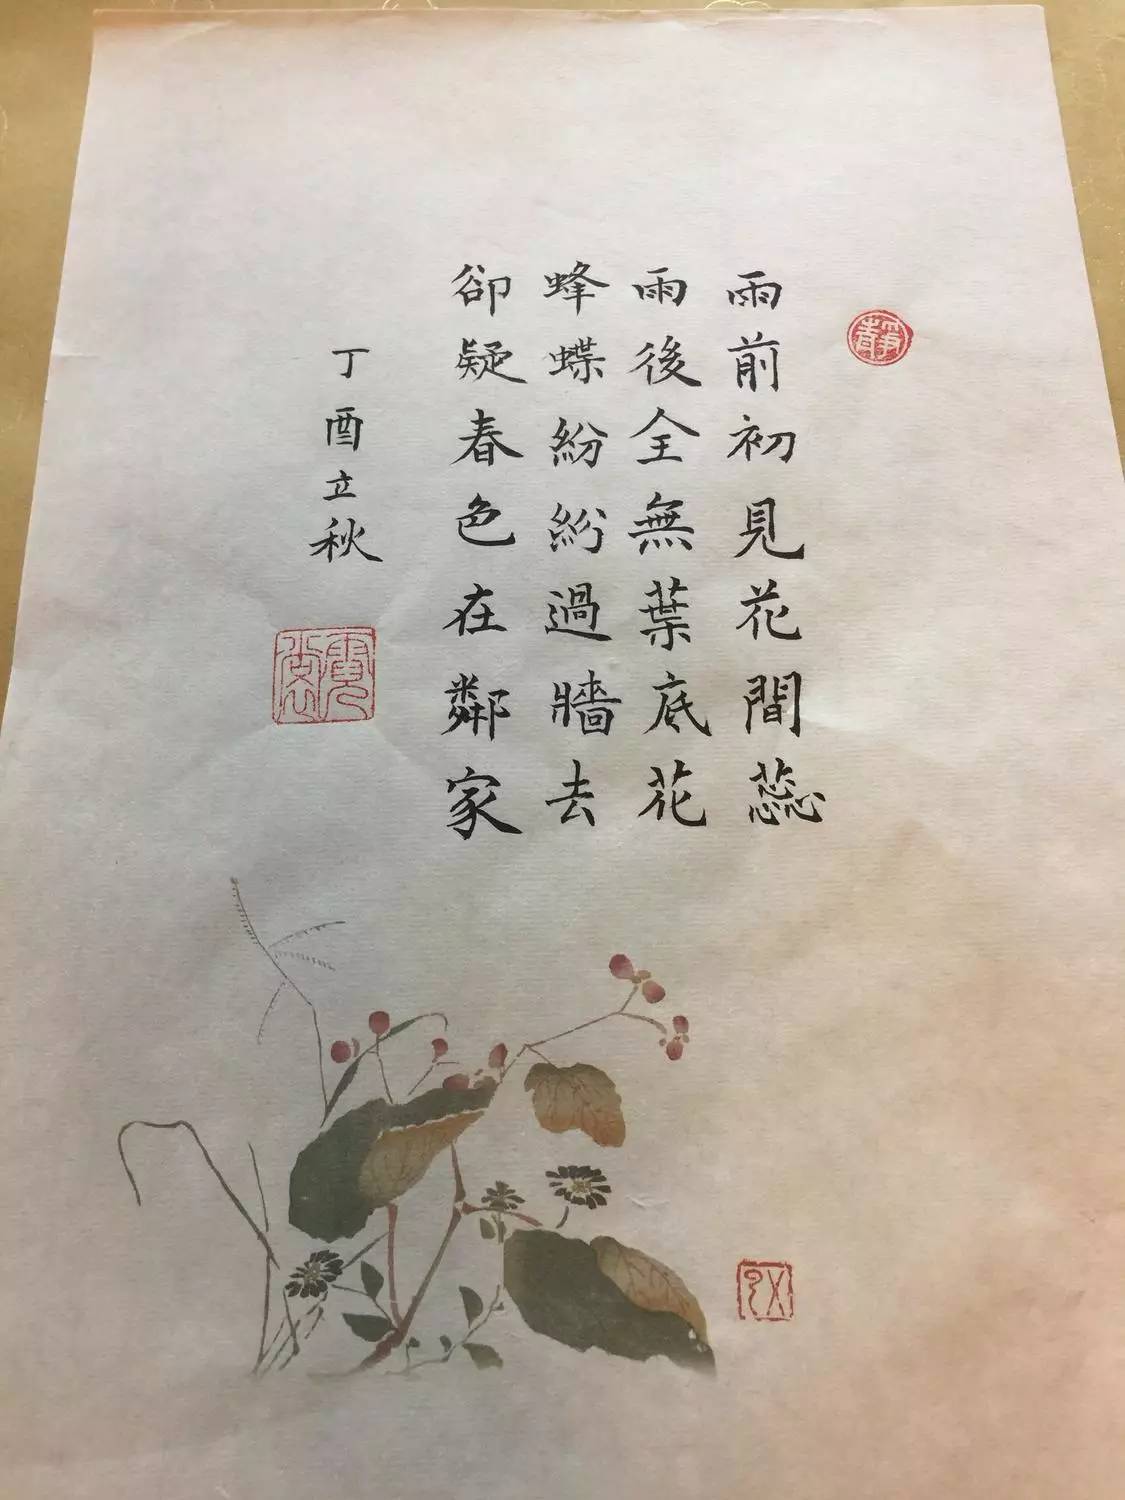 雨前初見花間蕊
雨後全無葉底花
蜂蝶紛紛過牆去
卻疑春色在鄰家
丁酉立秋